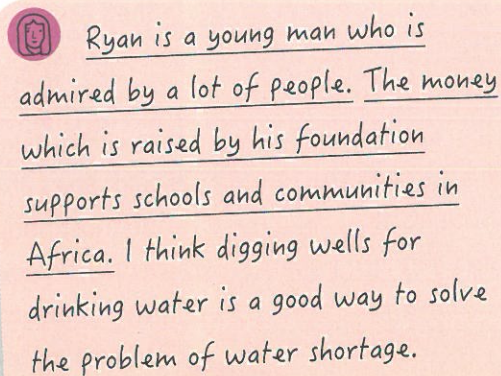 Ryan is a young man who is
admired by a lot of people. The money
which is raised by his foundation
supports schools and communities in
Africa. I think digging wells for
drinking water is a good way to solve
the problem of water shortage.